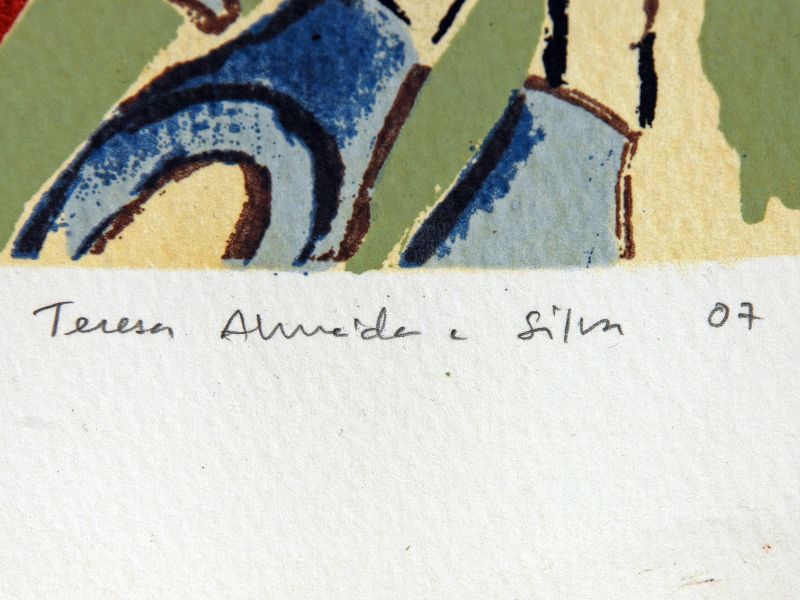 Teresa Almeida e Silva 07